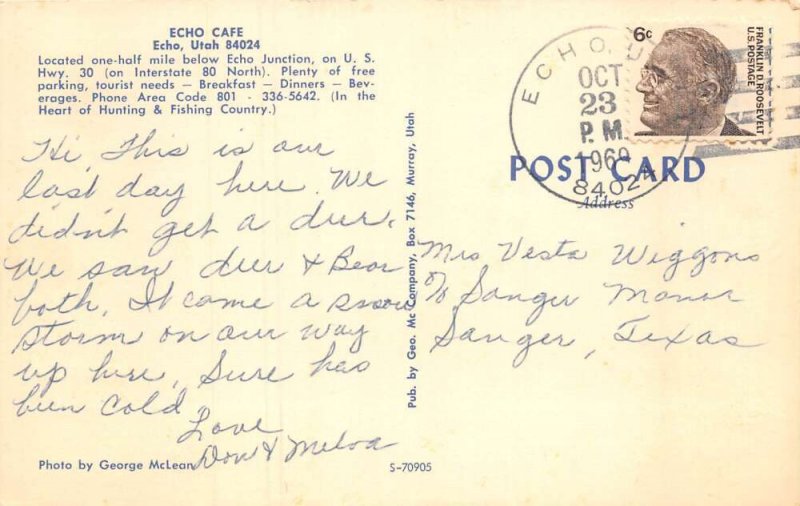 ECHO CAFE
Echo, Utah 84024
Located one-half mile below Echo Junction, on U. S.
Hwy. 30 (on Interstate 80 North). Plenty of free
parking, tourist needs — Breakfast — Dinners — Bev-
erages. Phone Area Code 801 - 336-5642. (In the
Heart of Hunting & Fishing Country.)
Hi, This is our
last day here. We
didn't get a deer.
We saw deer & Bear
both. It came a snow
storm on our way
up here, Sure has
been cold
Love
Don & Melva
Photo by George McLean
Pub. by Geo. Mc Company, Box 7146, Murray, Utah
S-70905
ECHO, U
OCT
23
P. M.
1969
84024
6c
FRANKLIN D. ROOSEVELT
U.S. POSTAGE
POST CARD
Address
Mrs Vesta Wiggons
c/o Sanger Manor
Sanger, Texas